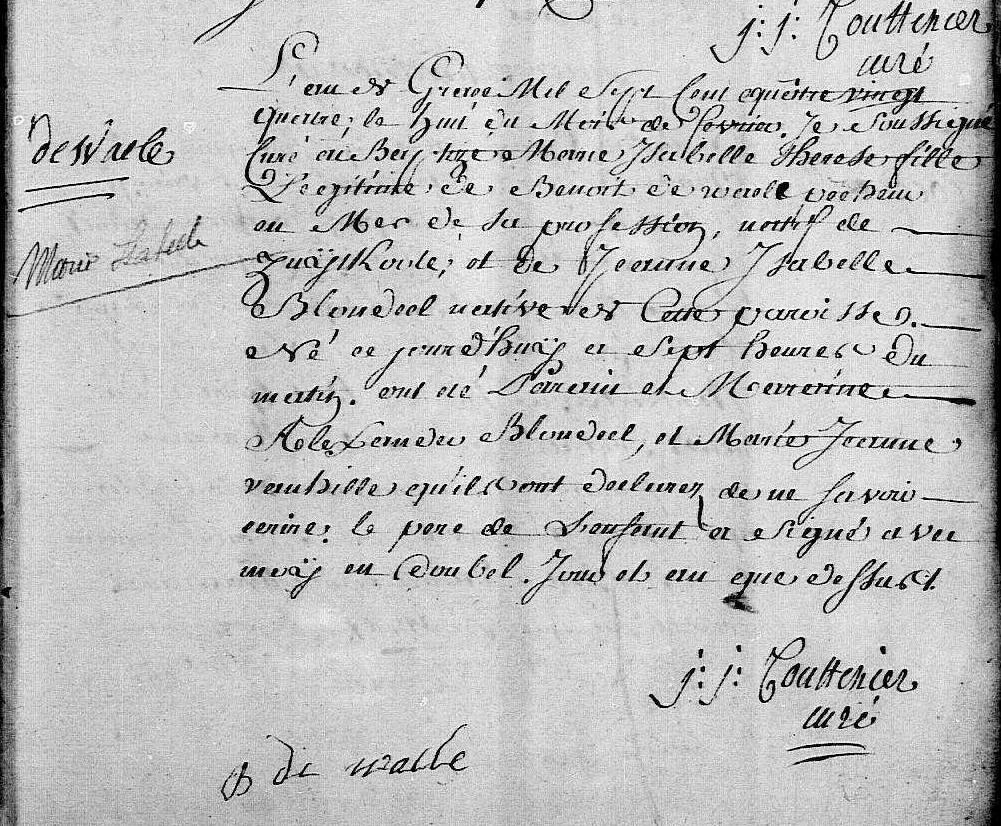 j: j: Couttenier
curé
L'an de Grace Mil Sept Cent quattre vingt
quatre, le huit du Mois de fevrier. Je Soussigné
de Waele
Curé ai Baptize Marie Isabelle Therese fille
Legitime de Benoit de waele pecheur
Marie Isabelle
en Mer de sa profession, natif de
Zuijtkoote, et de Jeanne Isabelle
Blondeel native de Cette paroisse.
Né ce jourd'huij a Sept heures du
matin. ont été Parain et Marraine
Alexandre Blondeel, et Marie Jeanne
vanhille qu'ils ont declarez de ne savoir
ecrire. le pere de L'enfant a signé avec
moij en doubel. Jour et an que dessust.
j: j: Couttenier
curé
B de waele